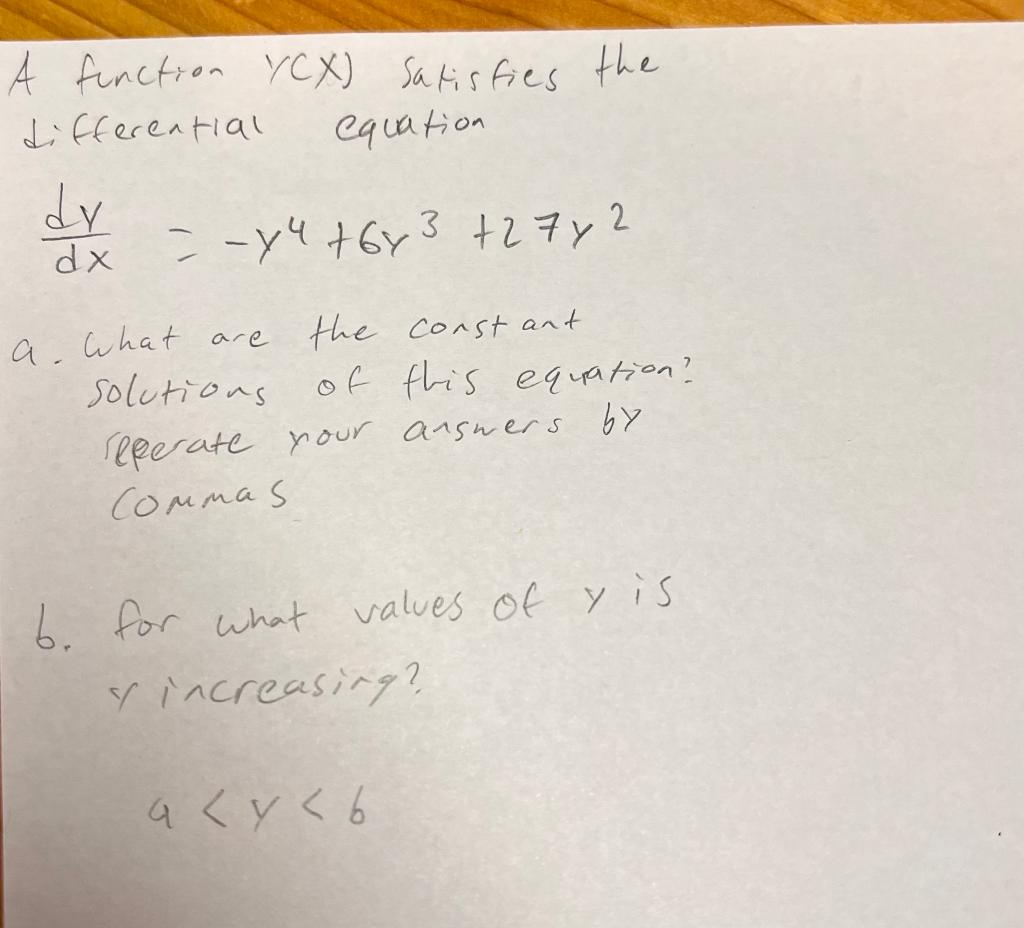 A function Y(X) satisfies the
differential equation
dy/dx = -y⁴ + 6y³ + 27y²
a. What are the constant
solutions of this equation?
seperate your answers by
commas
b. for what values of y is
y increasing?
a < y < b